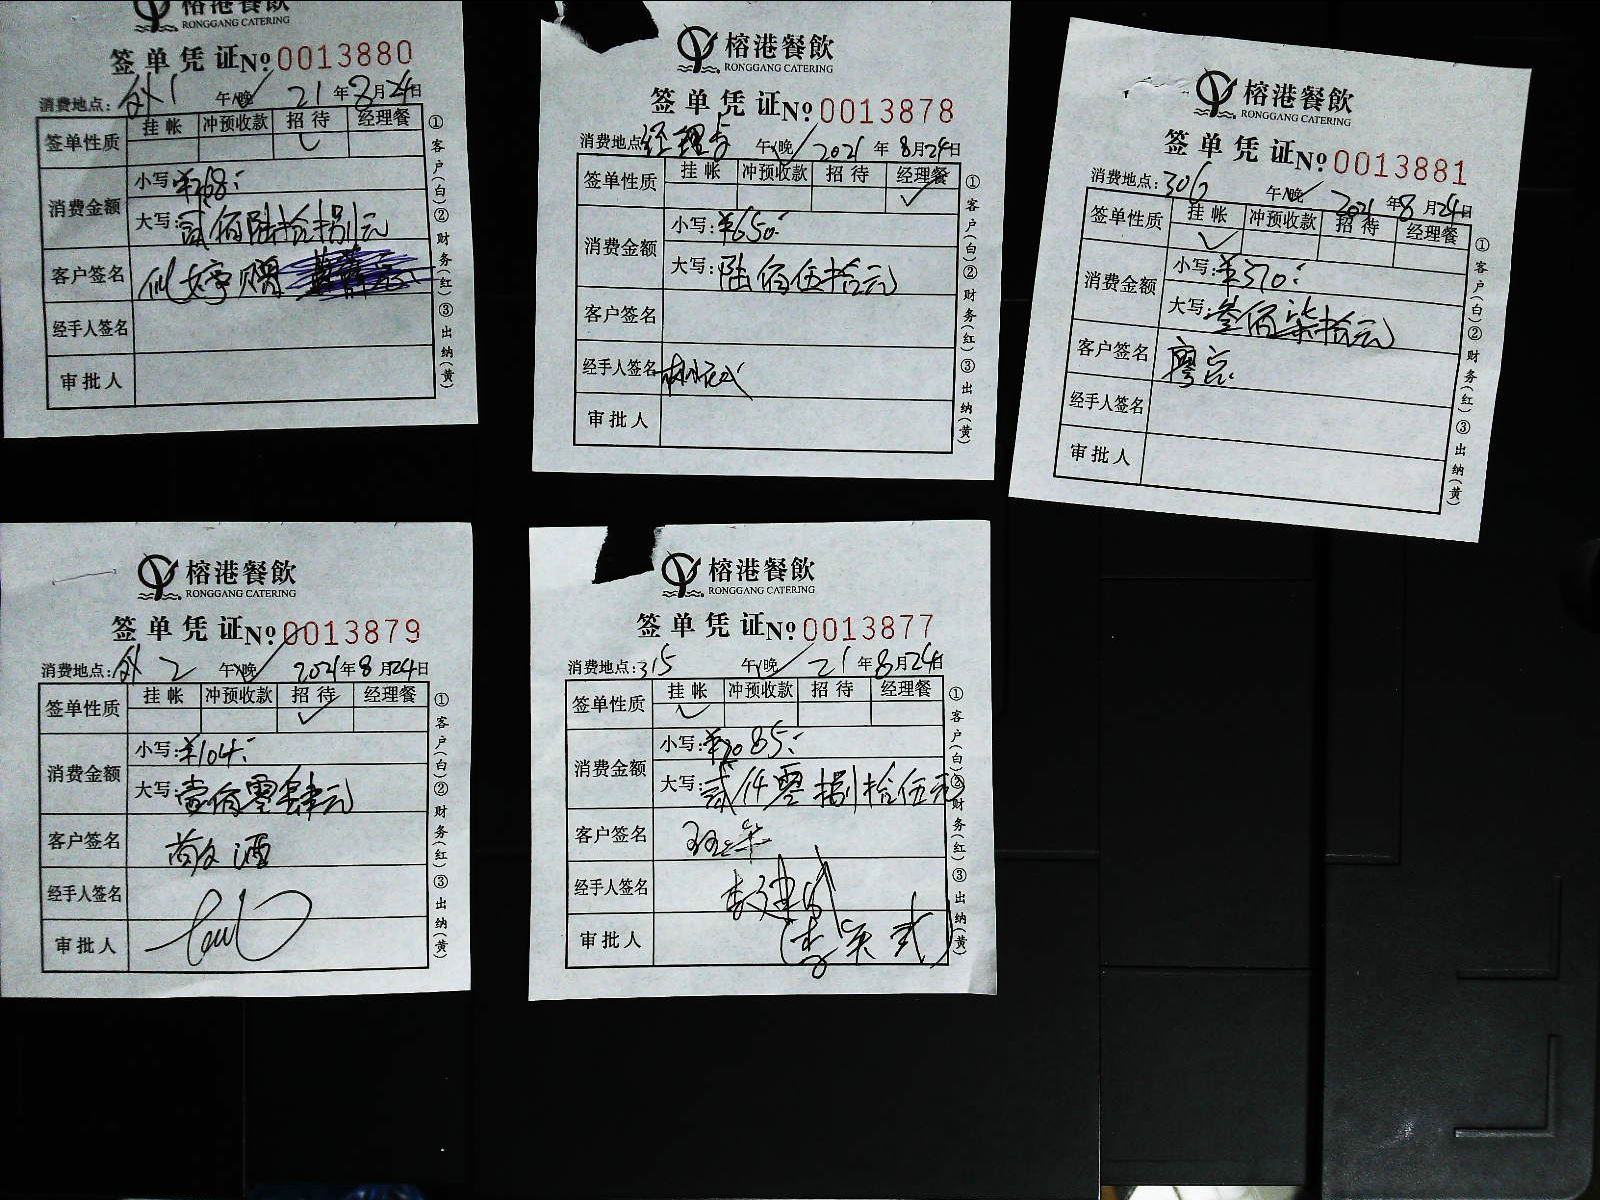 榕港餐飲
RONGGANG CATERING
签单凭证№0013880
消费地点：外1 午/晚 21年8月24日
签单性质 挂帐 冲预收款 招待 经理餐
消费金额
小写：¥268.
大写：贰佰陆拾捌元
客户签名
经手人签名
审批人
①客户(白)②财务(红)③出纳(黄)
榕港餐飲
RONGGANG CATERING
签单凭证№0013878
消费地点 经理 午/晚 2021年8月24日
签单性质 挂帐 冲预收款 招待 经理餐
消费金额
小写：¥650.
大写：陆佰伍拾元
客户签名
经手人签名
审批人
①客户(白)②财务(红)③出纳(黄)
榕港餐飲
RONGGANG CATERING
签单凭证№0013881
消费地点：306 午/晚 2021年8月24日
签单性质 挂帐 冲预收款 招待 经理餐
消费金额
小写：¥370.
大写：叁佰柒拾元
客户签名 廖总
经手人签名
审批人
①客户(白)②财务(红)③出纳(黄)
榕港餐飲
RONGGANG CATERING
签单凭证№0013879
消费地点：外2 午/晚 2021年8月24日
签单性质 挂帐 冲预收款 招待 经理餐
消费金额
小写：¥104.
大写：壹佰零肆元
客户签名 敬酒
经手人签名
审批人
①客户(白)②财务(红)③出纳(黄)
榕港餐飲
RONGGANG CATERING
签单凭证№0013877
消费地点：315 午/晚 21年8月24日
签单性质 挂帐 冲预收款 招待 经理餐
消费金额
小写：¥2085.
大写：贰仟零捌拾伍元
客户签名
经手人签名
审批人
①客户(白)②财务(红)③出纳(黄)